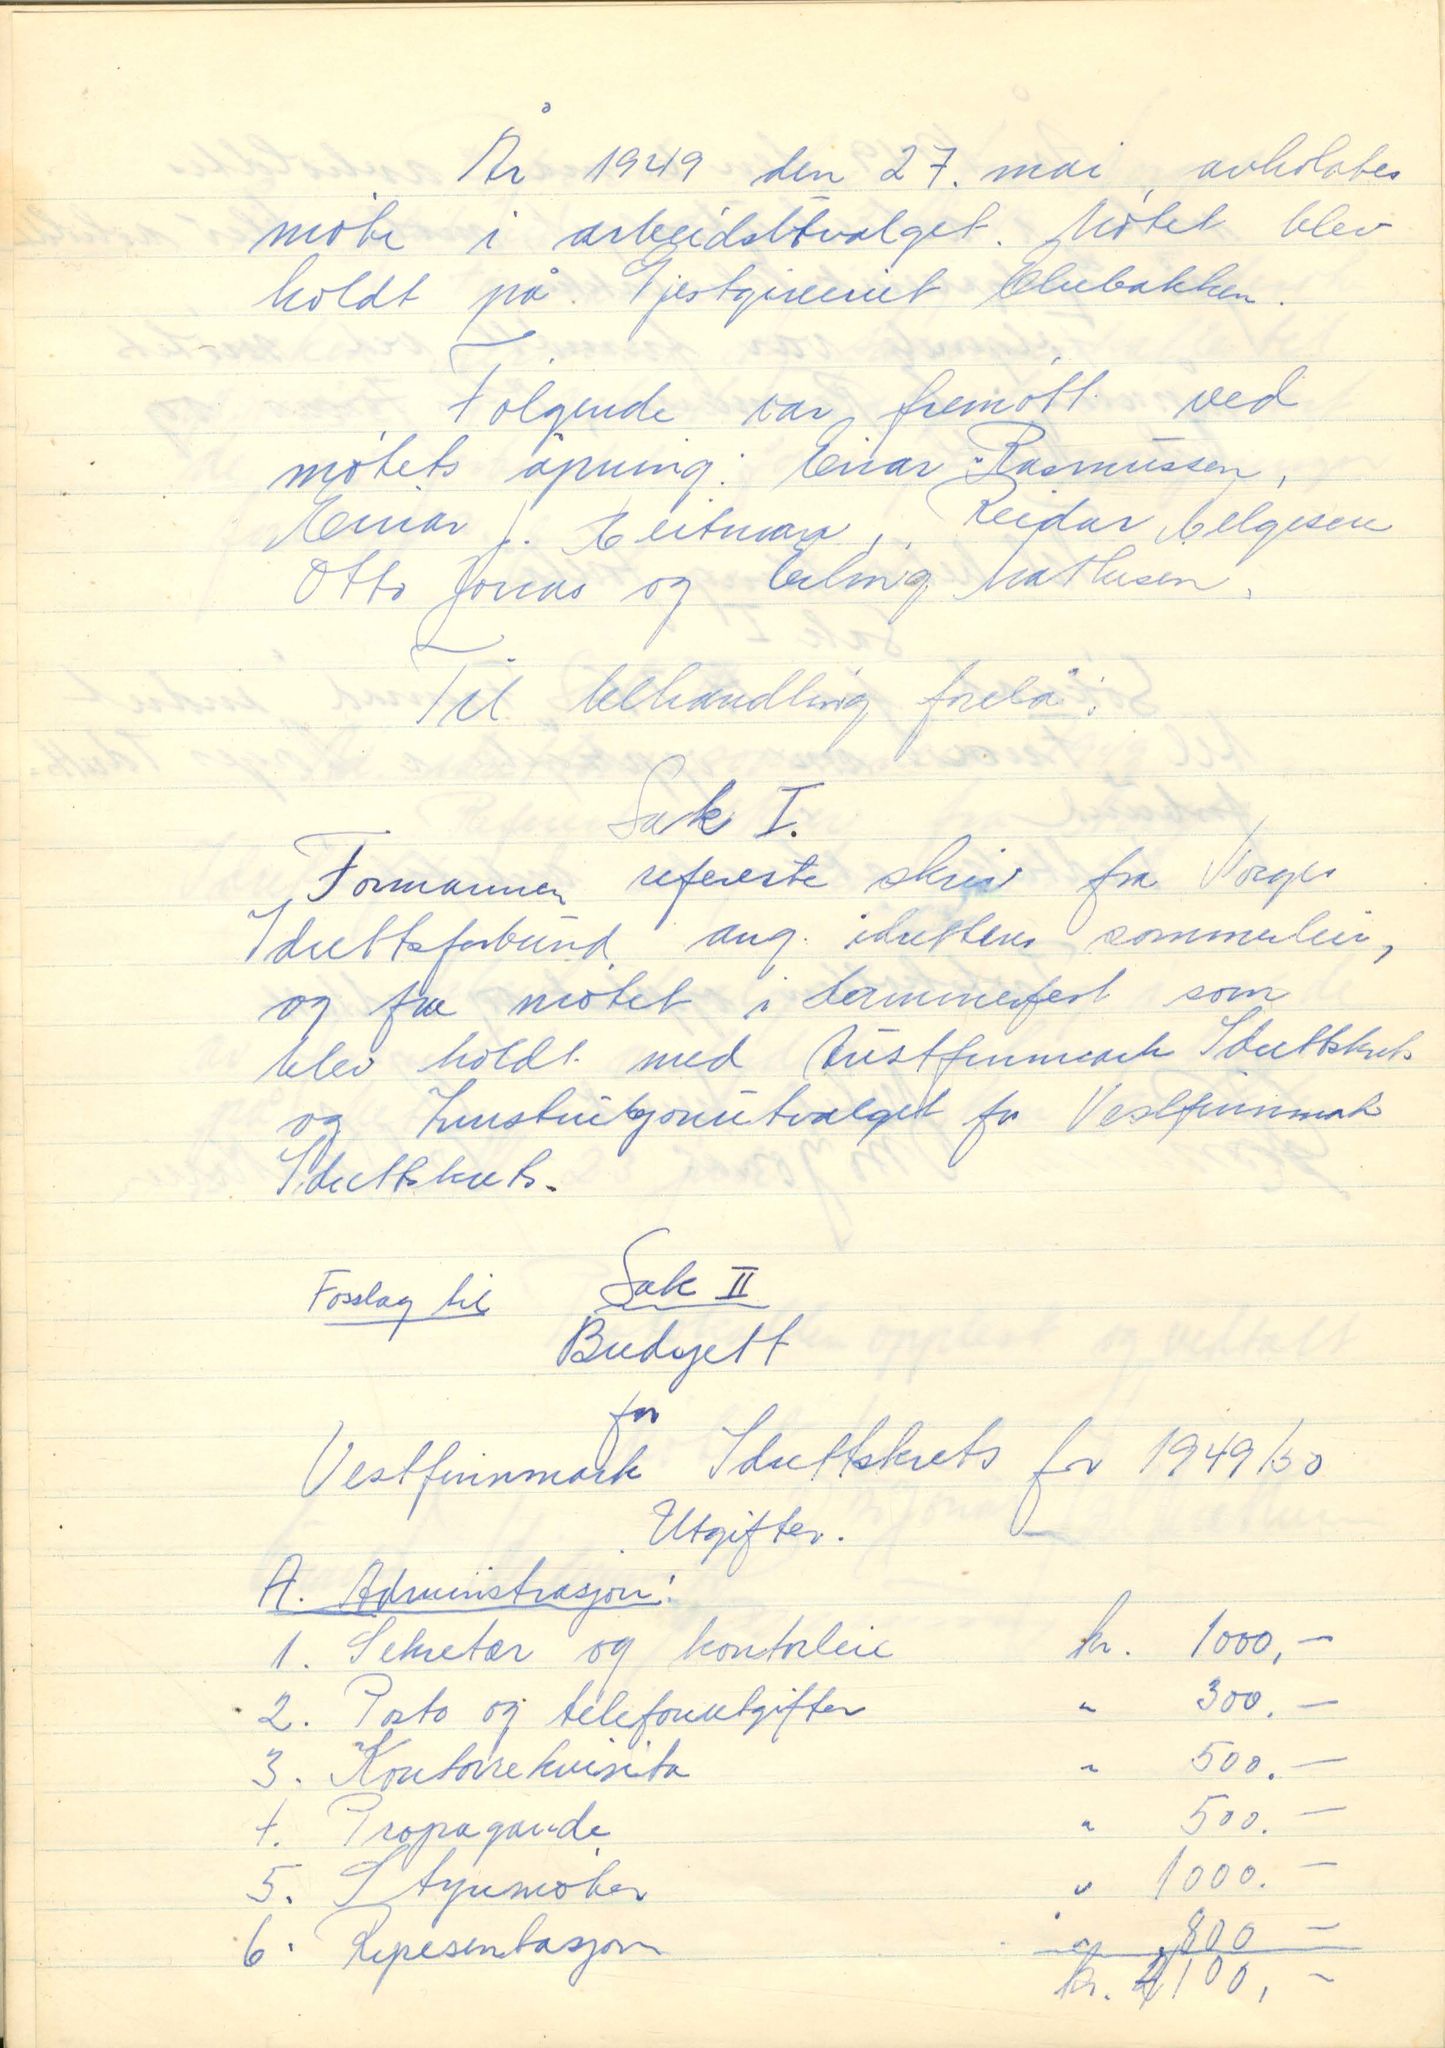 År 1949 den 27. mai, avholdtes
møte i arbeidsutvalget. Møtet blev
holdt på Gjestgiveriet Elvebakken.
Følgende var fremøtt ved
møtets åpning: Einar Rasmussen,
Einar J. Heitmann, Reidar Helgesen
Otto Jonas og Erling Mathisen.
Til behandling forelå:
Sak I.
Formannen refererte skriv fra Norges
Idrettsforbund ang. idrettens sommerleir,
og fra møtet i Hammerfest som
blev holdt med Austfinnmark Idrettskrets
og Instruksjonsutvalget for Vestfinnmark
Idrettskrets.
Forslag til Sak II
Budsjett
for
Vestfinnmark Idrettskrets for 1949/50
Utgifter.
A. Administrasjon:
1. Sekretær og kontorleie kr. 1000,-
2. Porto og telefonutgifter " 300.-
3. Kontorrekvisita " 500.-
4. Propaganda " 500.-
5. Styremøter " 1000.-
6. Representasjon " 800 -
kr. 4100,-